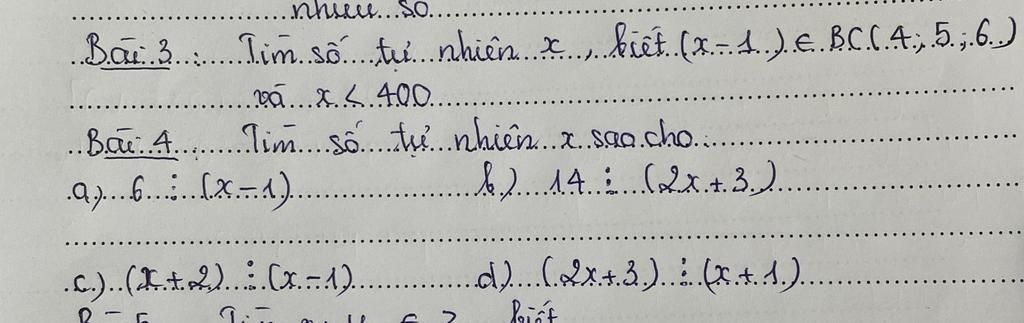 nhiêu số
Bài 3 : Tìm số tự nhiên x, biết (x-1) ∈ BC(4; 5; 6)
và x < 400
Bài 4 Tìm số tự nhiên x sao cho:
a) 6 ⋮ (x-1) b) 14 ⋮ (2x+3)
c) (x+2) ⋮ (x-1) d) (2x+3) ⋮ (x+1)
biết